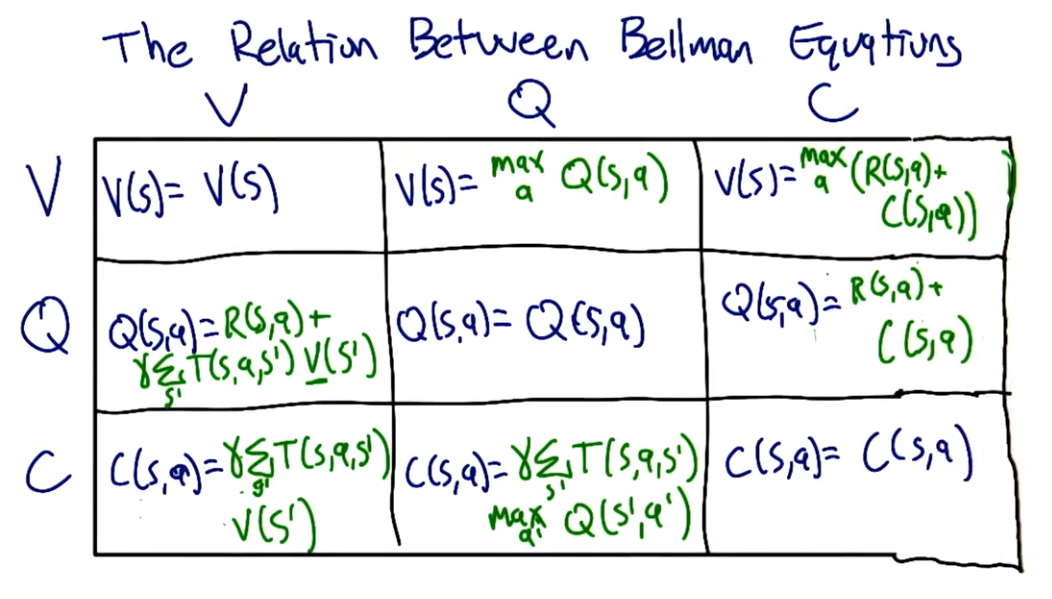 The Relation Between Bellman Equations
V Q C
V V(s)= V(s) V(s)= max_a Q(s,a) V(s)= max_a (R(s,a)+
C(s,a))
Q Q(s,a)= R(s,a)+ Q(s,a)= Q(s,a) Q(s,a)= R(s,a)+
γ∑_s' T(s,a,s') V(s') C(s,a)
C C(s,a)= γ∑_s' T(s,a,s') C(s,a)= γ∑_s' T(s,a,s') C(s,a)= C(s,a)
V(s') max_a' Q(s',a')